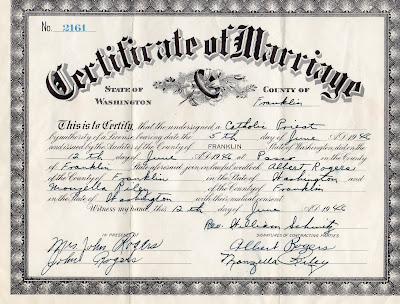 No. 2161
Certificate of Marriage
STATE OF WASHINGTON
COUNTY OF Franklin
This is to Certify, that the undersigned a Catholic Priest
by authority of a License bearing date the 5th day of June A.D. 1946
and issued by the Auditor of the County of FRANKLIN State of Washington, did on the
12th day of June A.D. 1946 at Pasco in the County
of Franklin State aforesaid, join in lawful wedlock Albert Rogers
of the County of Franklin in the State of Washington and
Monzella Riley of the County of Franklin
in the State of Washington with their mutual consent.
Witness my hand, this 12th day of June A.D. 1946
Rev. William Schmitz
IN PRESENCE OF
SIGNATURES OF CONTRACTING PARTIES
Mrs John Rogers
Albert Rogers
John Rogers
Monzella Riley